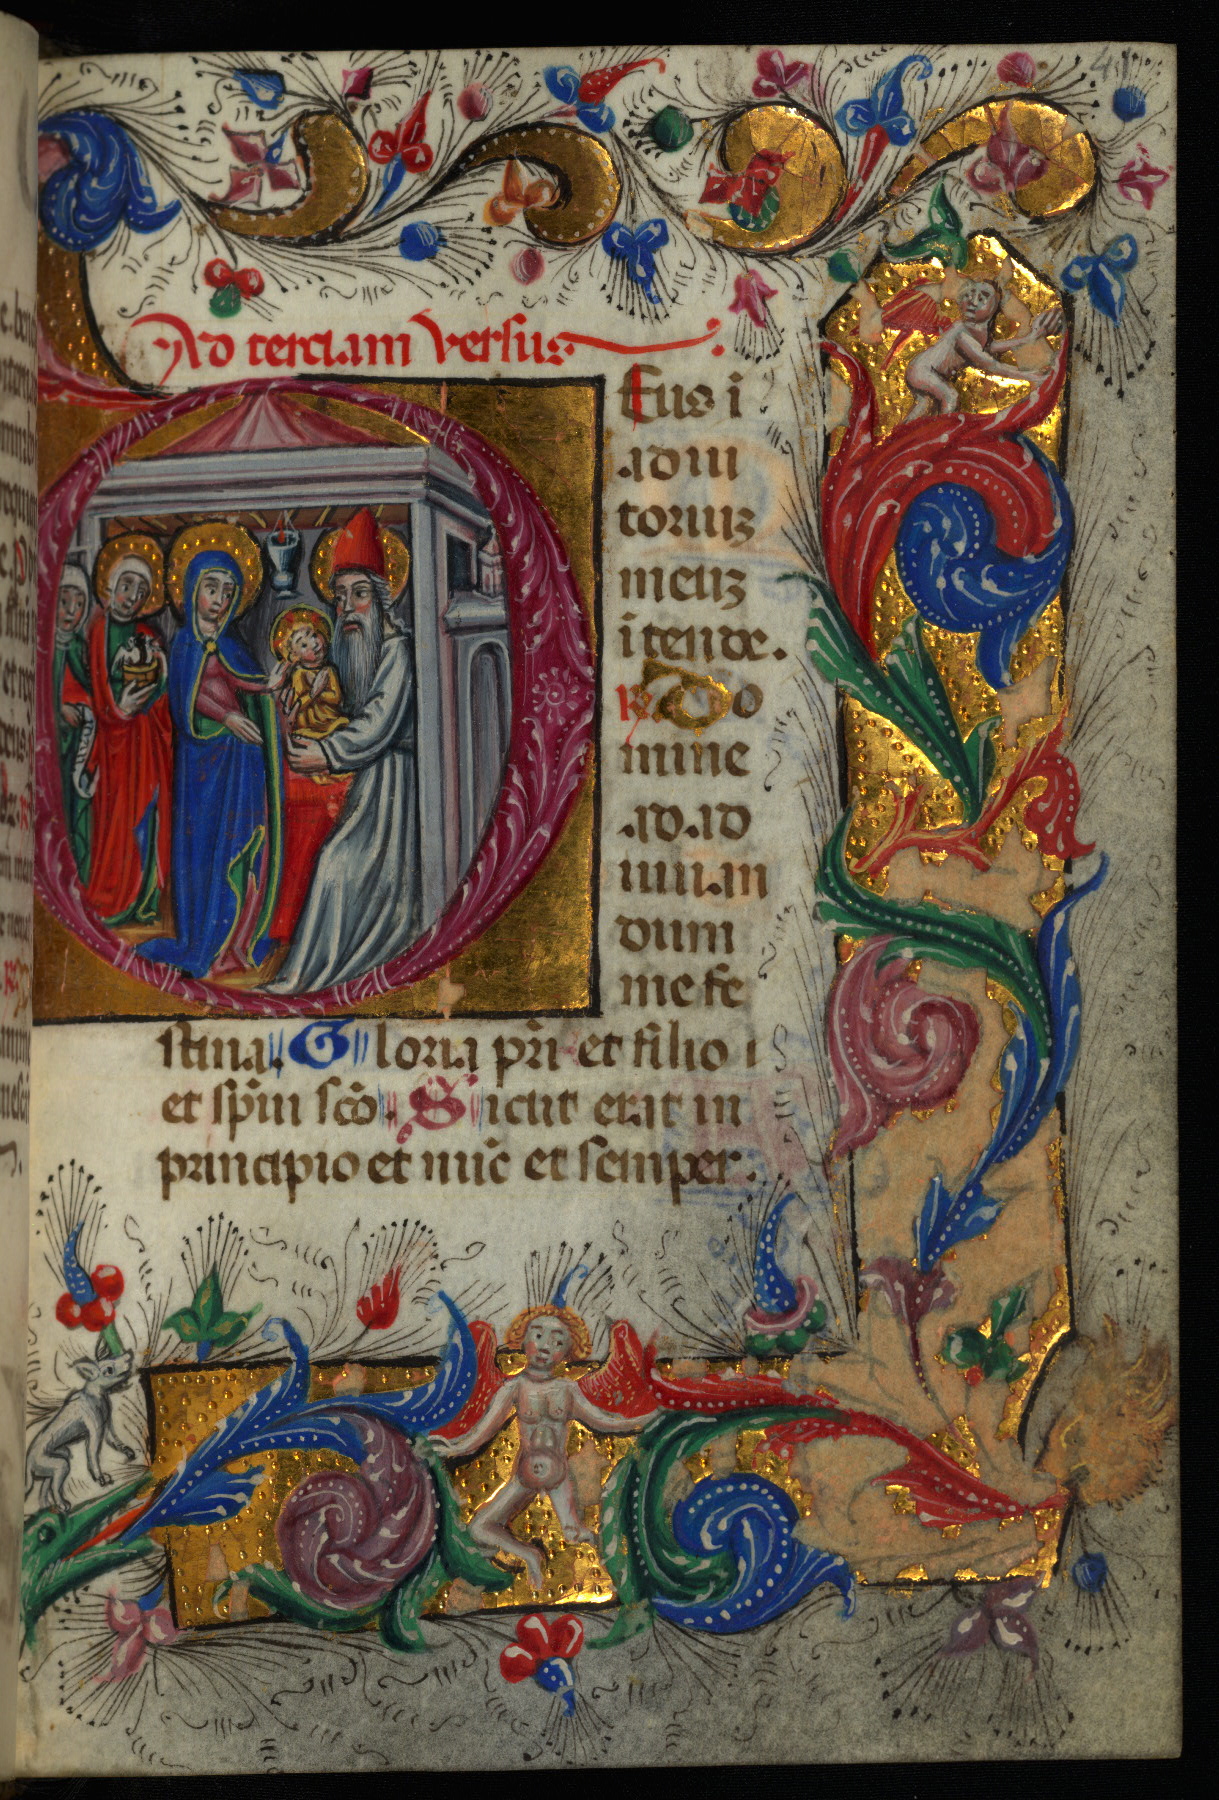 Ad terciam versus
Eus i
adiu
toriuʒ
meuʒ
i tende.
R do
mine
ad ad
iuuan
dum
me fe
stina. Gloria pr̄i et filio
et sp̄iu sc̄o. Sicut erat in
principio et nūc et semper.